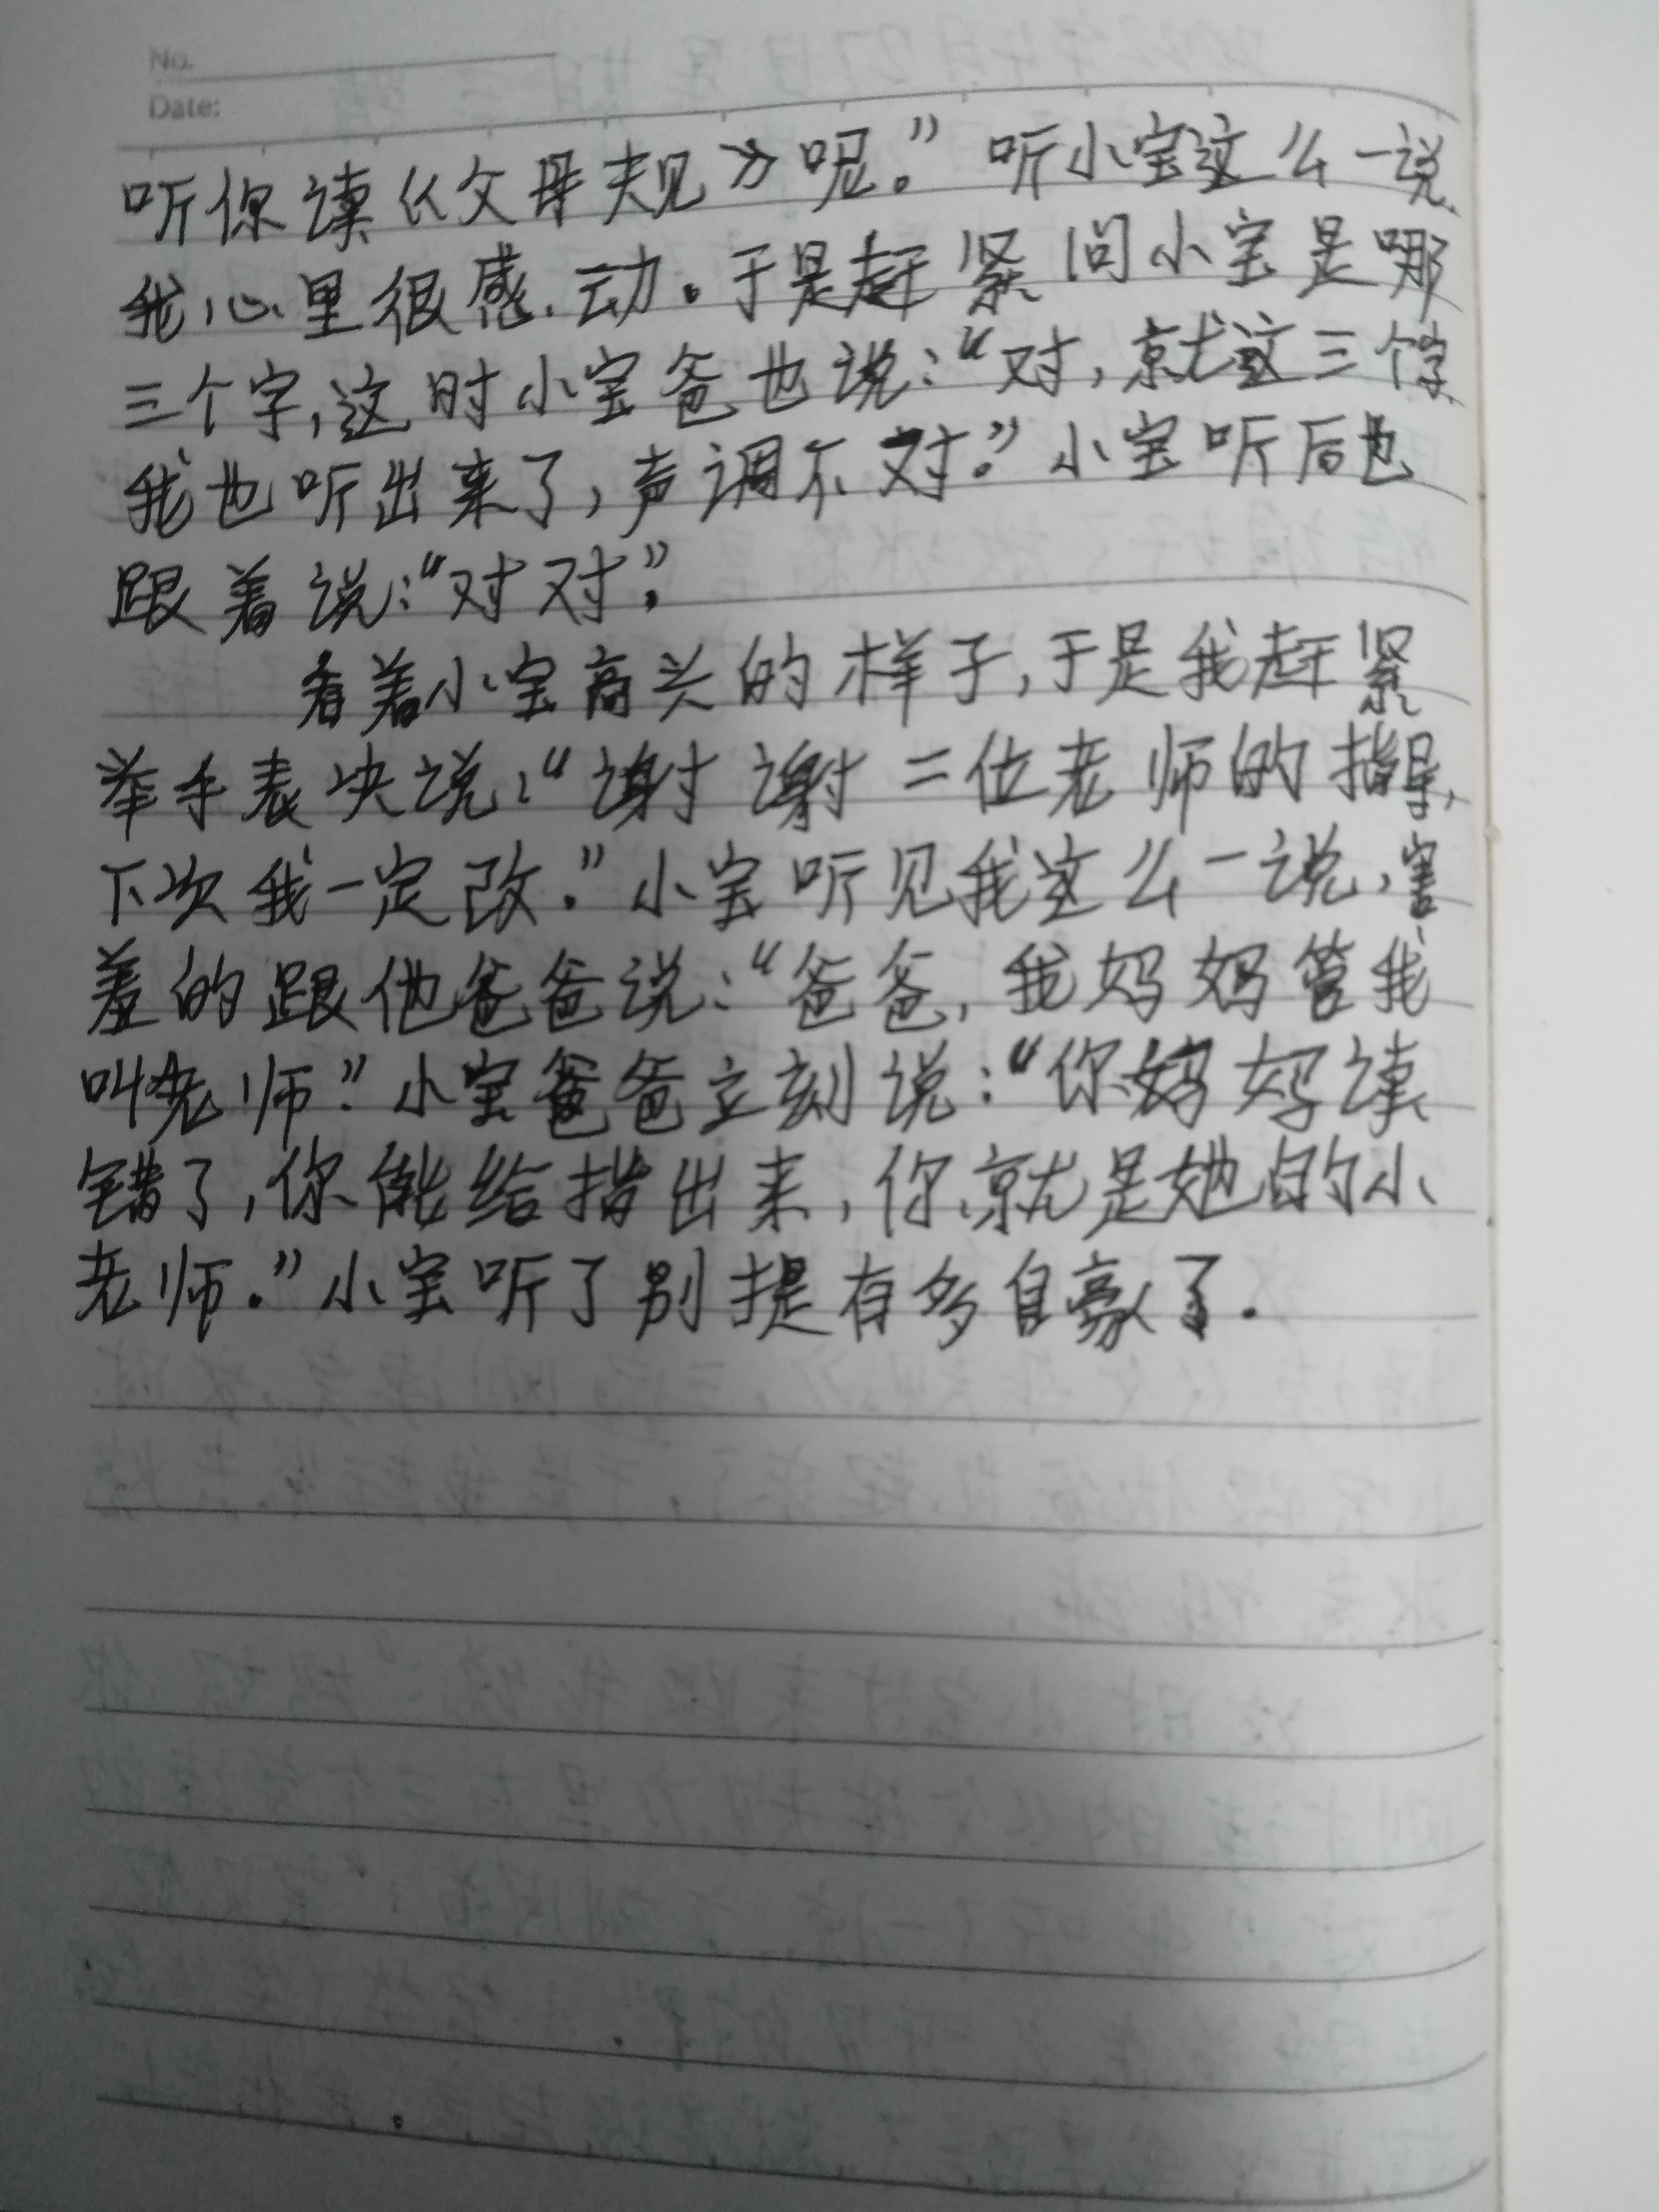 No.
Date:
听你读《父母规》呢。”听小宝这么一说,
我心里很感动。于是赶紧问小宝是哪
三个字,这时小宝爸也说:“对,就这三个字,
我也听出来了,声调不对。”小宝听后也
跟着说:“对对”。
看着小宝高兴的样子,于是我赶紧
举手表决说:“谢谢二位老师的指导,
下次我一定改。”小宝听见我这么一说,害
羞的跟他爸爸说:“爸爸,我妈妈管我
叫老师”。小宝爸爸立刻说:“你妈妈读
错了,你能给指出来,你就是她的小
老师。”小宝听了别提有多自豪了.